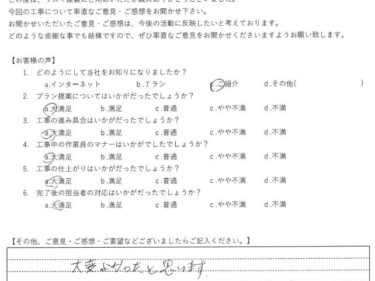 今回の工事について率直なご意見・ご感想をお聞かせ下さい。
お聞かせいただいたご意見・ご感想は、今後の活動に反映したいと考えております。
どのような些細な事でも結構ですので、ぜひ率直なご意見をお聞かせくださいますようお願い致します。
【お客様の声】
1. どのようにして当社をお知りになりましたか？
a.インターネット b.チラシ c.ご紹介 d.その他(
2. プラン提案についてはいかがだったでしょうか？
a.大満足 b.満足 c.普通 c.やや不満 d.不満
3. 工事の進み具合はいかがだったでしょうか？
a.大満足 b.満足 c.普通 c.やや不満 d.不満
4. 工事中の作業員のマナーはいかがでしたでしょうか？
a.大満足 b.満足 c.普通 c.やや不満 d.不満
5. 工事の仕上がりはいかがだったでしょうか？
a.大満足 b.満足 c.普通 c.やや不満 d.不満
6. 完了後の担当者の対応はいかがだったでしょうか？
a.大満足 b.満足 c.普通 c.やや不満 d.不満
【その他、ご意見・ご感想・ご要望などございましたらご記入ください。】
大変よかったと思います